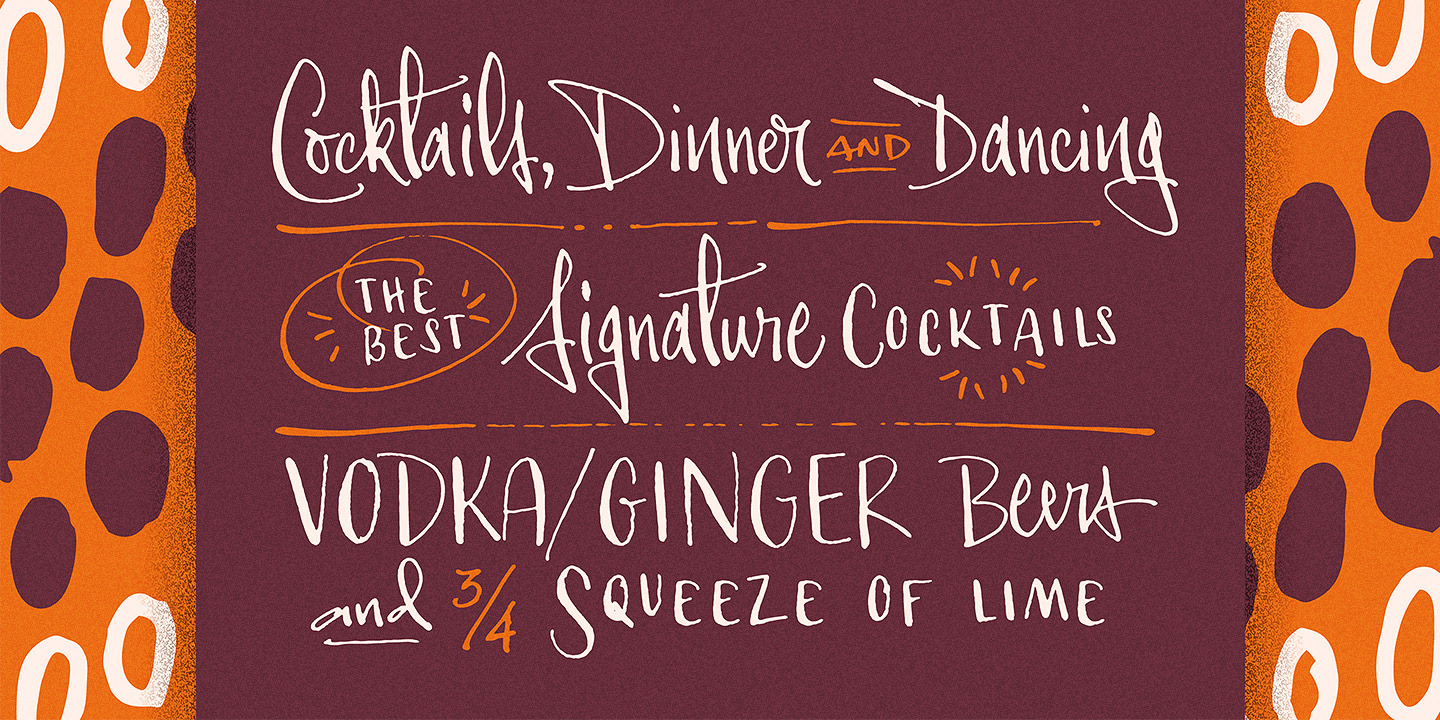 Cocktails, Dinner AND Dancing
THE BEST Signature COCKTAILS
VODKA/GINGER Beers
and 3/4 SQUEEZE OF LIME